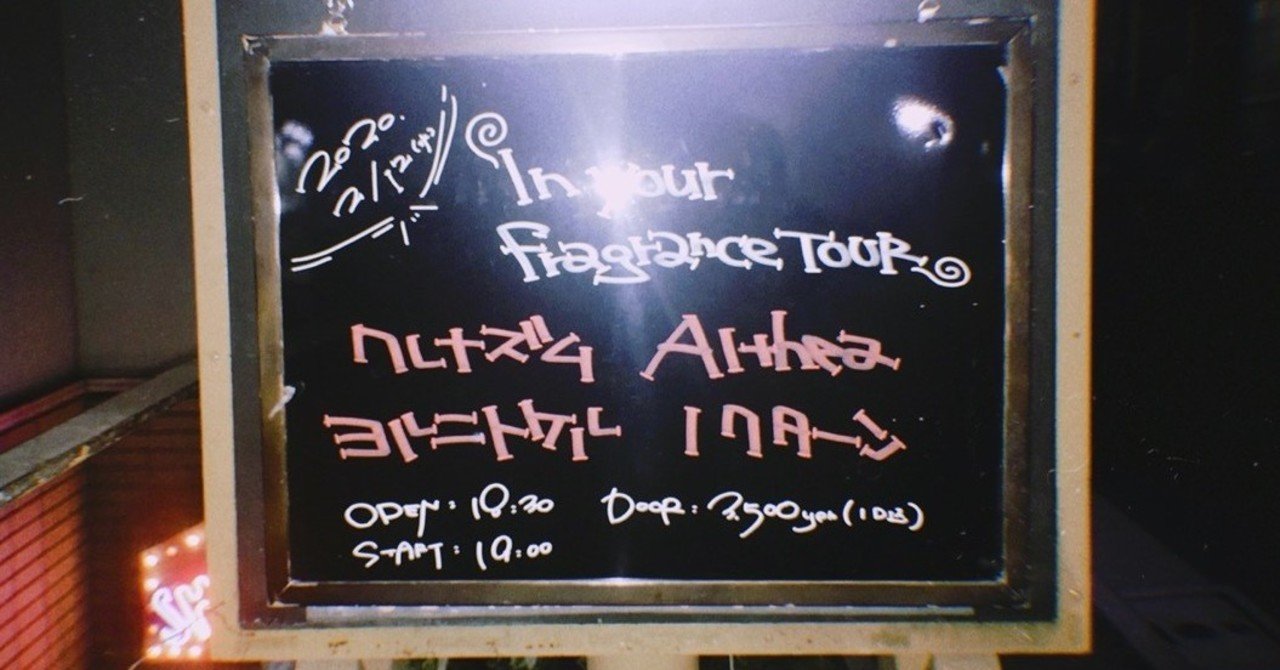 2020.
2/12(水)
In your
fragrance TOUR
クレナズム Althea
ヨルニトケル ノクターン
OPEN: 18:30 Door: 2,500yen (1D込)
START: 19:00